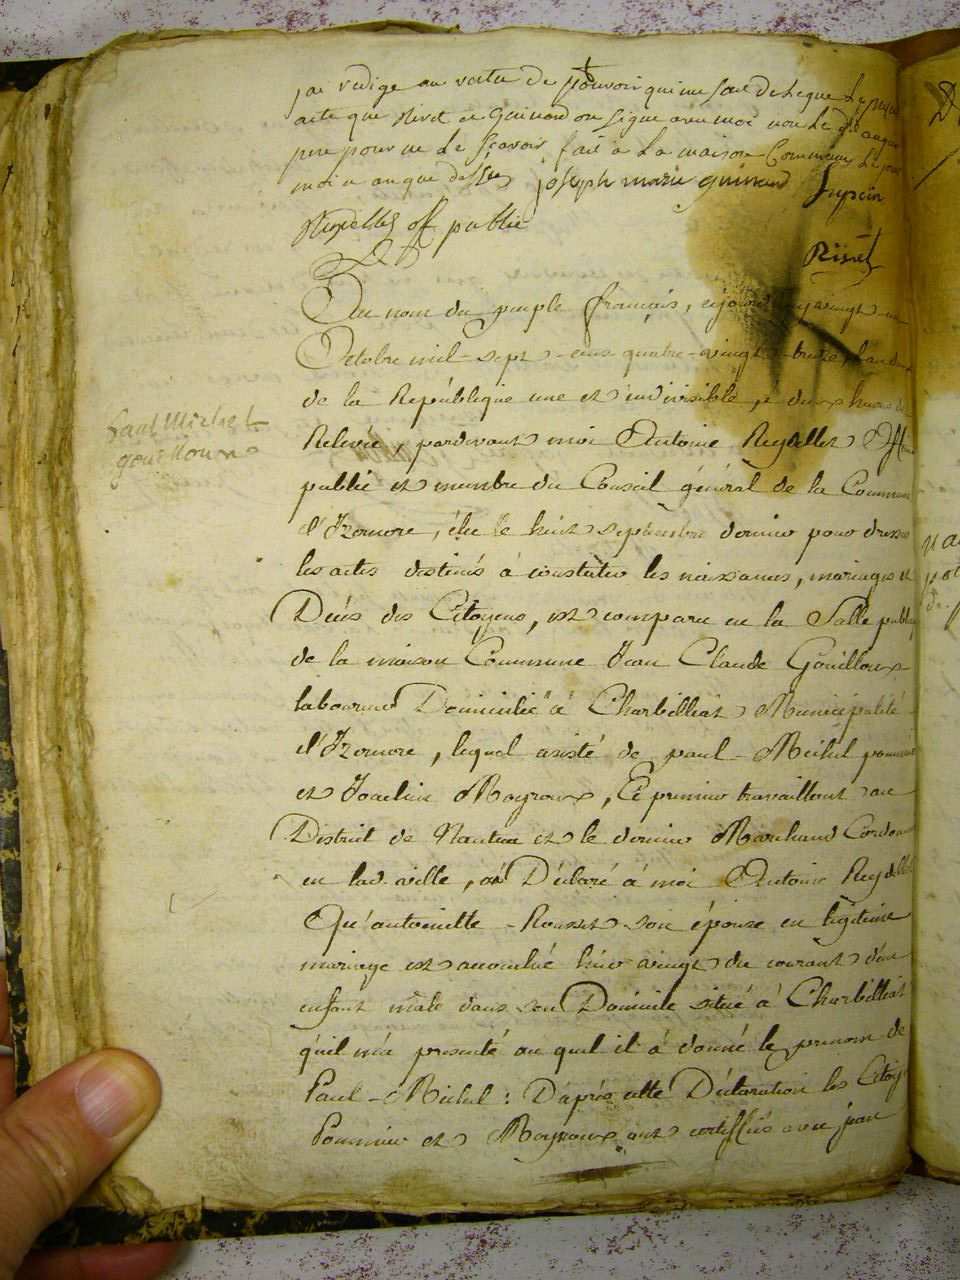 j'ai redigé en vertu de pouvoir qui me sont delegue Le present
acte que Rivet et Guinard on signe avec moi non Le
pere pour ne Le sçavoir, fait a La maison Commune Le jour
moi et an que dessus joseph marie guinard
Reydellet off public
Rivet
Au nom du peuple français, cejourd'huy vingt un
Octobre mil-sept-cens quatre-vingt-treize, l'an deux
de la République une et indivisible, à deux heures de
Relevée, pardevant moi Antoine Reydellet Officier
public et membre du Conseil général de la Commune
d'Izernore, élu le huit septembre dernier pour dresser
les actes destinés à constater les naissances, mariages et
Décés des Citoyens, est comparu en la Salle publique
de la maison Commune Jean Claude Gouilloux
laboureur Domicilié à Charbilliat Municipalité
d'Izernore, lequel assisté de paul-Michel pommier
et Joachin Moyroux, Le premier travaillant au
District de Nantua et le dernier Marchand Cordonnier
en lad. ville, a Déclaré à moi Antoine Reydellet
Qu'antoinette Rousset son épouse en légitime
mariage est accouchée hier vingt du courant d'un
enfant mâle dans son Domicile situé à Charbilliat
qu'il m'a presenté au quel il a donné le prenom de
Paul-Michel : D'après cette Déclaration les Citoy.
Pommier et Moyroux ont certifiés avec jean
Paul Michel
gouilloux